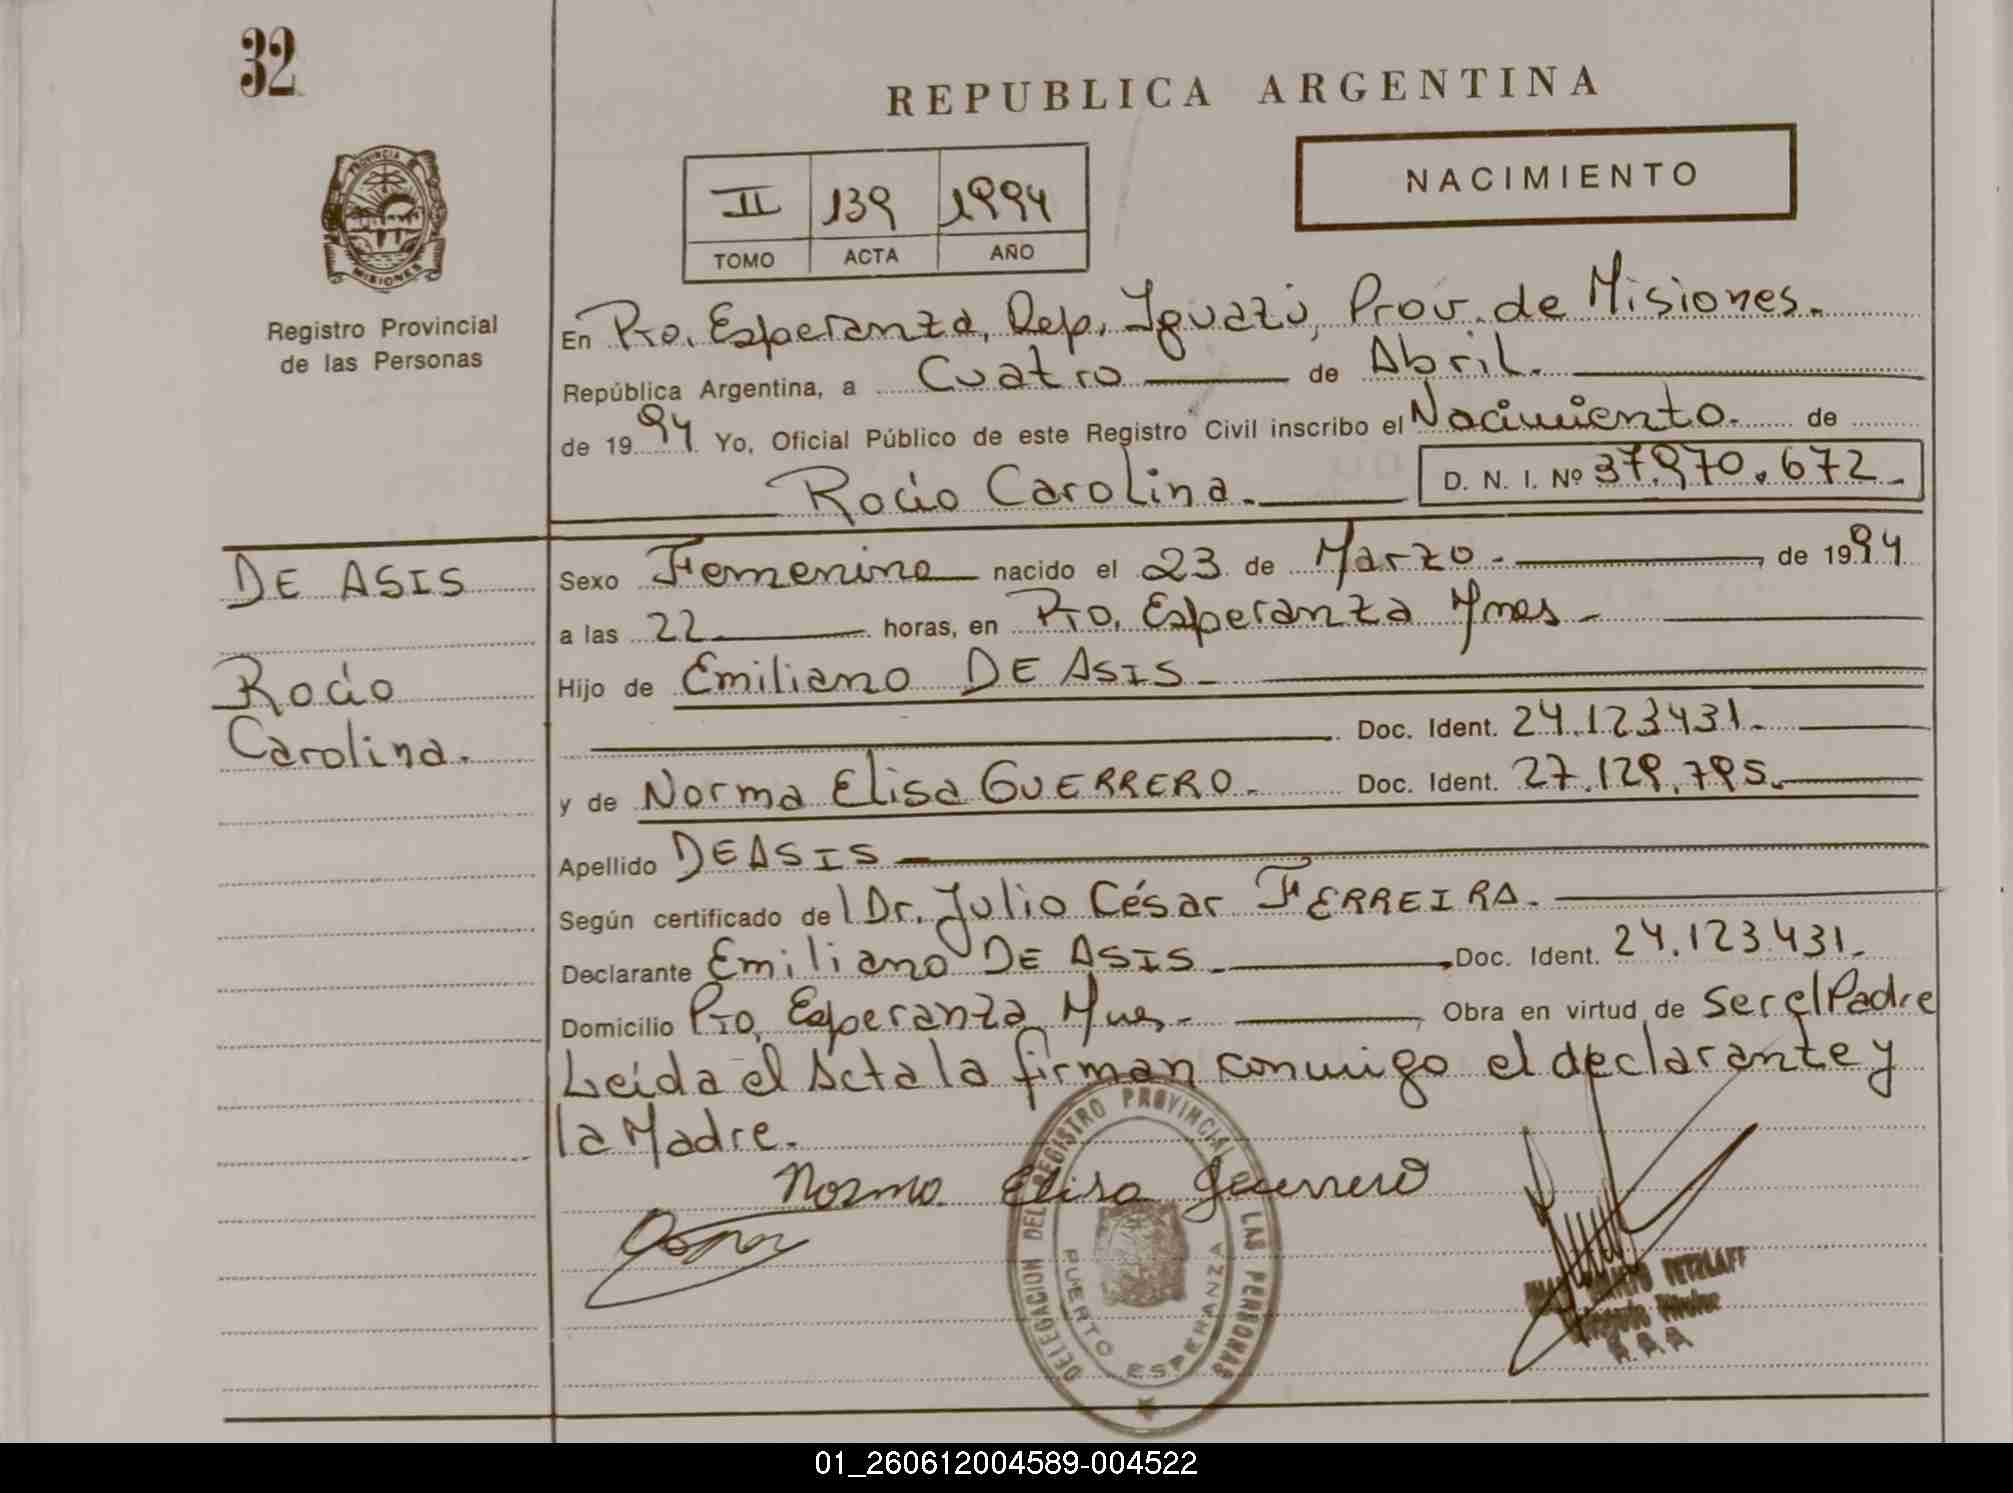 32
REPUBLICA ARGENTINA
NACIMIENTO
II 139 1994
TOMO ACTA AÑO
PROVINCIA DE
MISIONES
Registro Provincial
de las Personas
En Pto. Esperanza, Dep. Iguazú, Prov. de Misiones.
República Argentina, a Cuatro de Abril.
de 1994 Yo, Oficial Público de este Registro Civil inscribo el Nacimiento. de
Rocio Carolina. D. N. I. Nº 37.970.672.
DE ASIS
Rocio
Carolina.
Sexo Femenino nacido el 23 de Marzo. de 1994
a las 22 horas, en Pto. Esperanza Mnes.
Hijo de Emiliano DE ASIS.
Doc. Ident. 24.123431.
y de Norma Elisa GUERRERO. Doc. Ident. 27.129.795.
Apellido DE ASIS
Según certificado del Dr. Julio César FERREIRA.
Declarante Emiliano DE ASIS. Doc. Ident. 24.123.431.
Domicilio Pto. Esperanza Mnes. Obra en virtud de Ser el Padre
Leída el Acta la firman conmigo el declarante y
la Madre.
Norma Elisa Guerrero
DELEGACION DEL REGISTRO PROVINCIAL DE LAS PERSONAS
PUERTO ESPERANZA
TETZLAFF
Titular
01_260612004589-004522